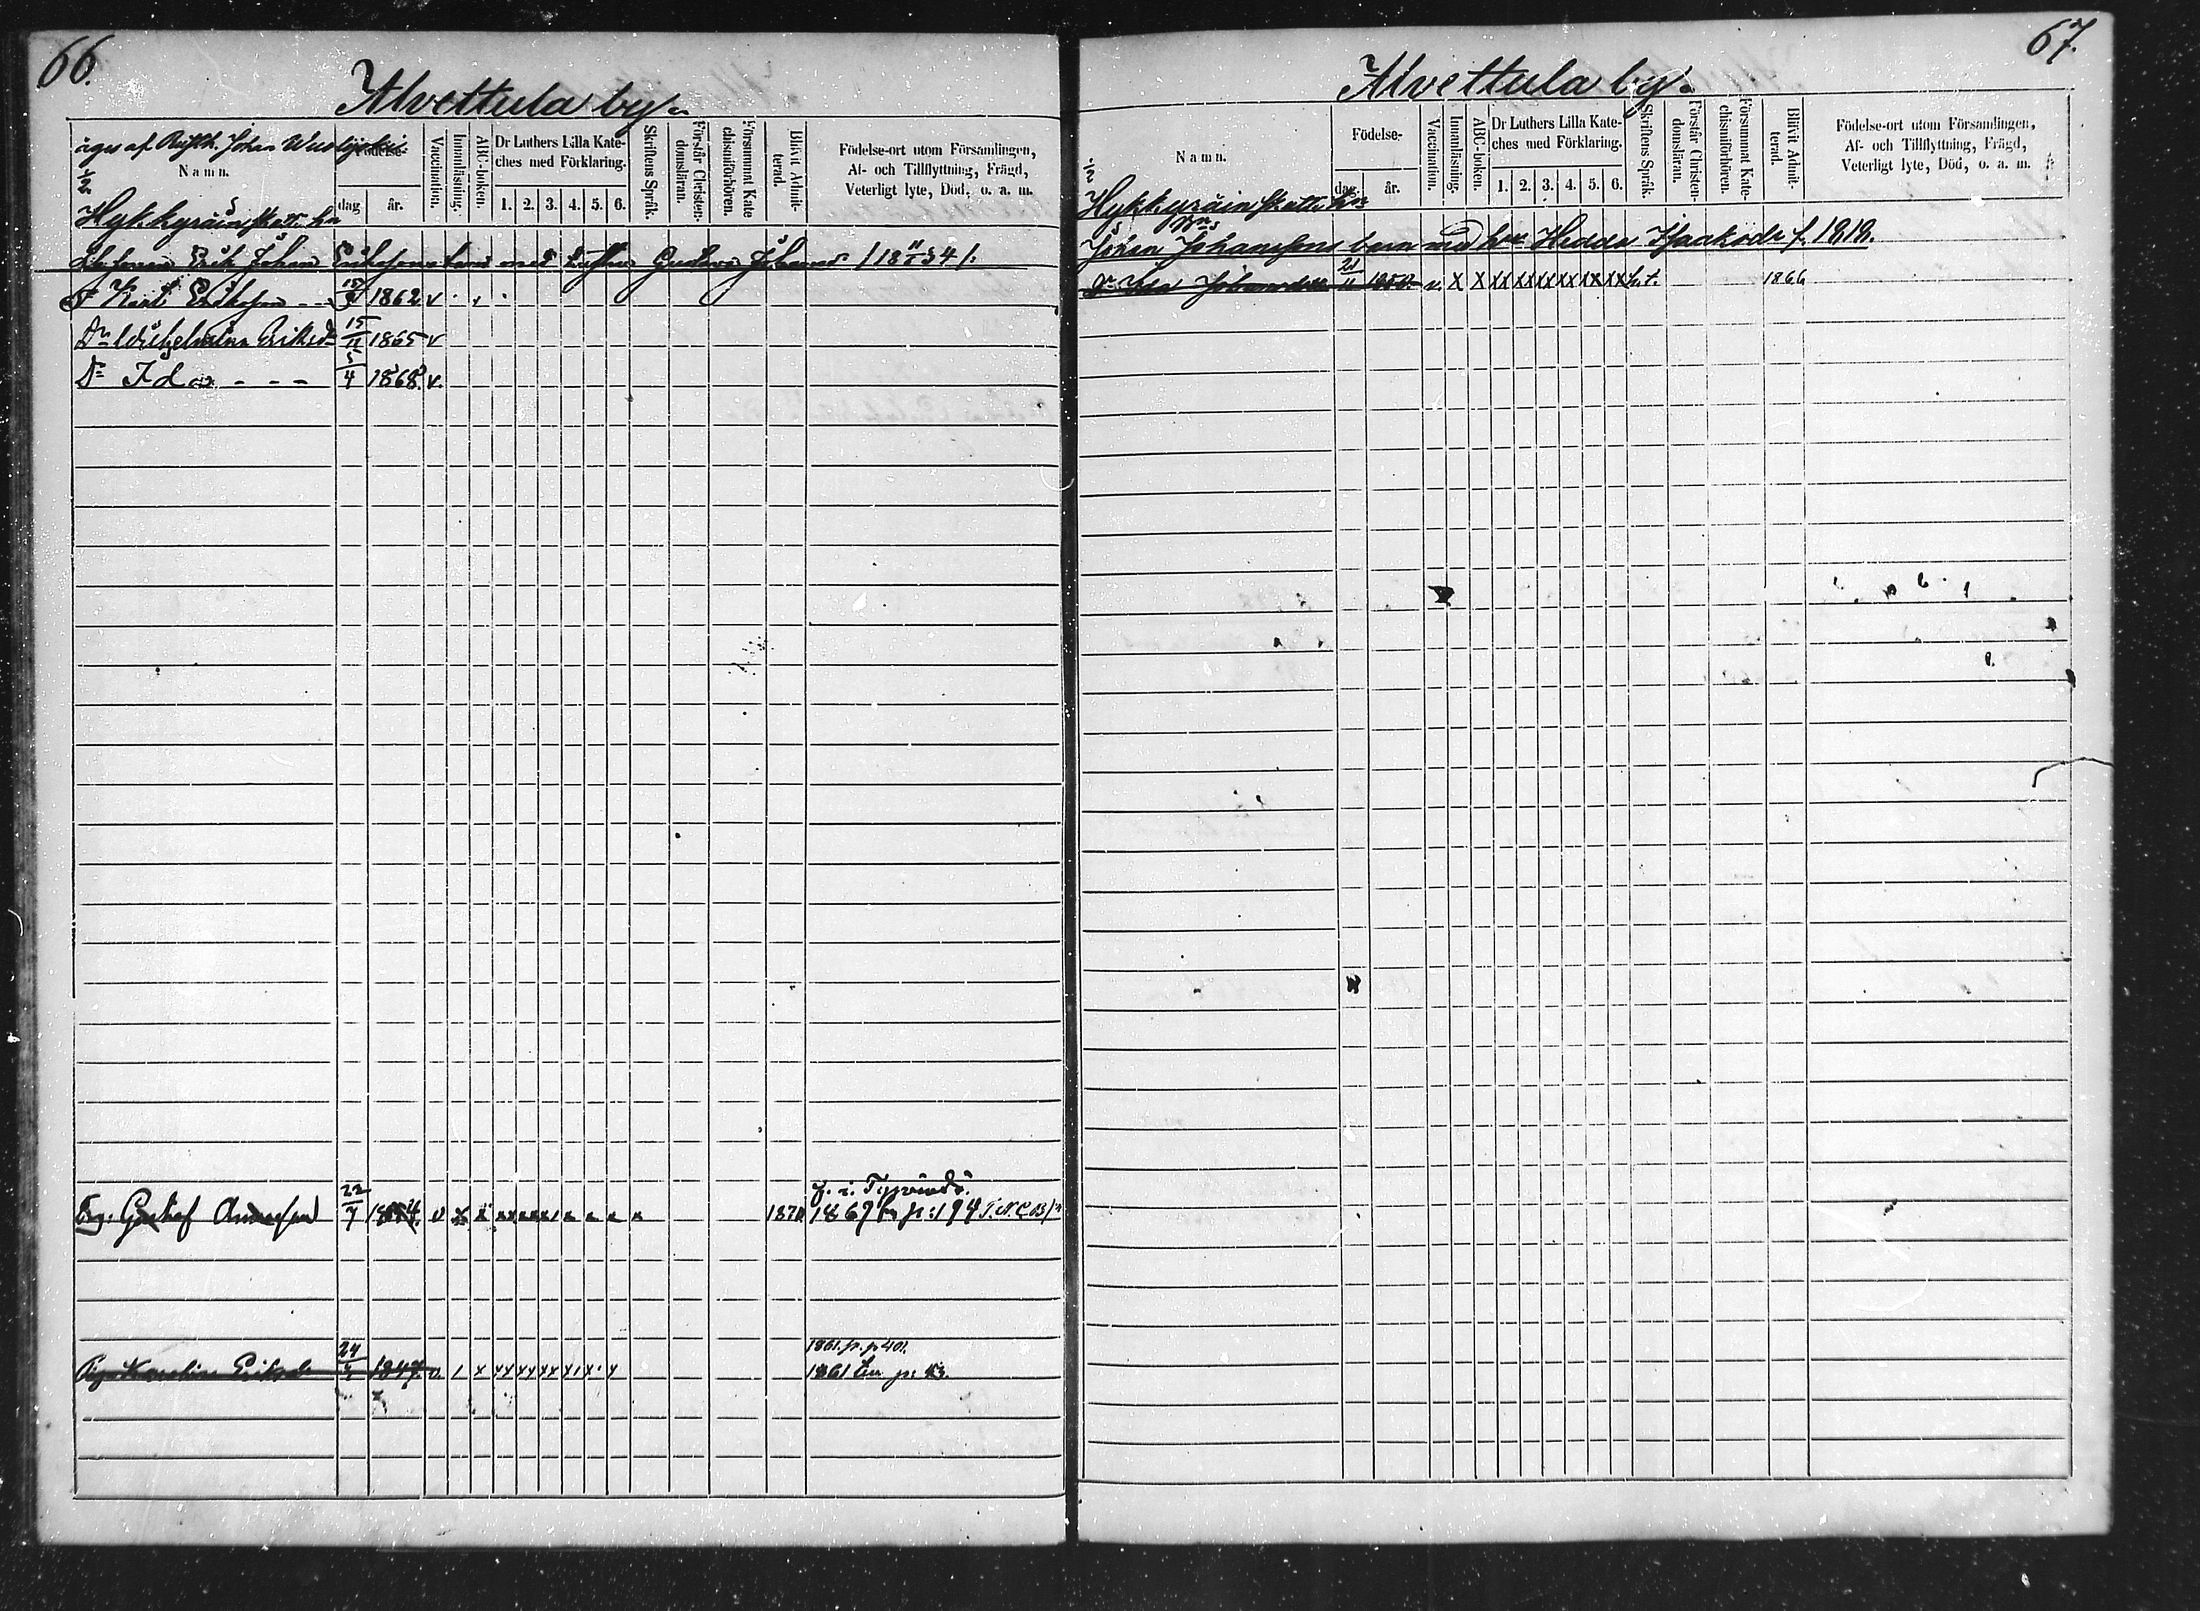 66.
Alvettula by.
äges af Rusth. Johan
Namn.
Födelse-
dag
år.
Vaccination.
Innanläsning.
ABC-boken.
Dr Luthers Lilla Kate-
ches med Förklaring.
1. 2. 3. 4. 5. 6.
Skriftens Språk.
Förstår Christen-
domsläran.
Försummat Kate
chismiförhören.
Blifvit Admit-
terad.
Födelse-ort utom Församlingen,
Af- och Tillflyttning, Frägd,
Veterligt lyte, Död, o. a. m.
1/2 Hykkyräin skatt. hn
Erik Johan Erikssons barn med hustru Gustava / 18 11/1 34 /.
Karl Eriksson - - 1862 v
Dr Wilhelmina Eriksdr 15/11 1865 v
Dr Ida - - - 5/4 1868. v.
Gustaf Andersson 22/7 v x x 187
f. i. Tyrvändö.
1869 fr p: 194
Karolina Eriksdr 24 1847. v. 1 x xx xx xx x1 x· x
1861. fr. p 401.
1861 p:
67.
Alvettula by.
Namn.
Födelse-
dag.
år.
Vaccination.
Innanläsning.
ABC-boken.
Dr Luthers Lilla Kate-
ches med Förklaring.
1. 2. 3. 4. 5. 6.
Skriftens Språk.
Förstår Christen-
domsläran.
Försummat Kate-
chismiförhören.
Blifvit Admit-
terad.
Födelse-ort utom Församlingen,
Af- och Tillflyttning, Frägd,
Veterligt lyte, Död, o. a. m.
1/2 Hykkyräin skatt. hn
Johan Johanssons barn med hu Hedda Isaaksdr f. 1818.
Dr Ida Johansdr 21/11 v. X X XX XX XX XX XX XX h.t. 1866